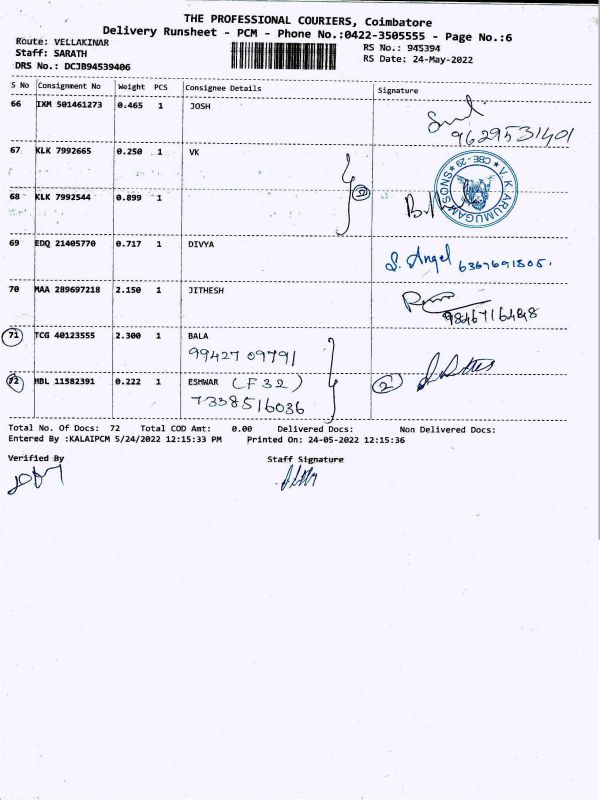 THE PROFESSIONAL COURIERS, Coimbatore
Delivery Runsheet - PCM - Phone No.:0422-3505555 - Page No.:6
Route: VELLAKINAR
Staff: SARATH
DRS No.: DCJB94539406
RS No.: 945394
RS Date: 24-May-2022
S No Consignment No Weight PCS Consignee Details Signature
66 IXM 501461273 0.465 1 JOSH
9629531401
67 KLK 7992665 0.250 1 VK
V.K.ARUMUGAM SONS CBE-29
68 KLK 7992544 0.899 1
2
69 EDQ 21405770 0.717 1 DIVYA
S. Angel 6367691805.
70 MAA 289697218 2.150 1 JITHESH
71 TCG 40123555 2.300 1 BALA
99427 09791
72 MBL 11582391 0.222 1 ESHWAR (F32) 2
7338516036
Total No. Of Docs: 72 Total COD Amt: 0.00 Delivered Docs: Non Delivered Docs:
Entered By :KALAIPCM 5/24/2022 12:15:33 PM Printed On: 24-05-2022 12:15:36
Verified By Staff Signature